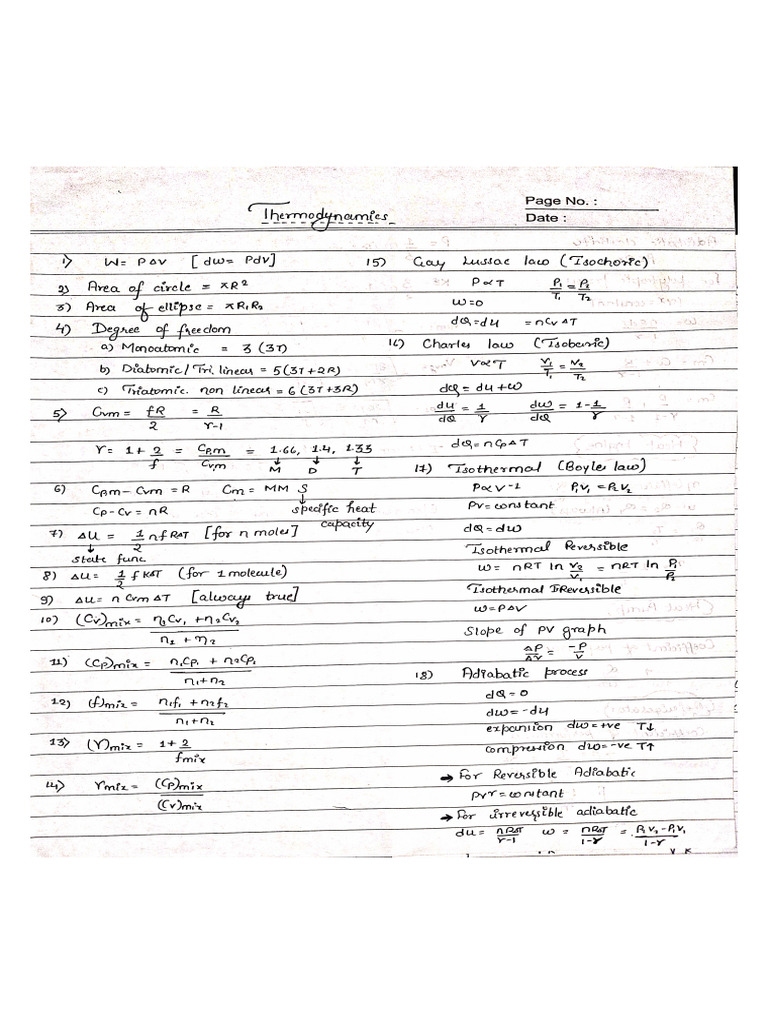 Thermodynamics
Page No. :
Date :
1) W = PΔV [dw = PdV]
2) Area of circle = πR²
3) Area of ellipse = πR₁R₂
4) Degree of freedom
a) Monoatomic = 3 (3T)
b) Diatomic / Tri. linear = 5 (3T+2R)
c) Triatomic. non linear = 6 (3T+3R)
5) Cvm = fR/2 = R/γ-1
γ = 1 + 2/f = CP,m/Cvm = 1.66, 1.4, 1.33
↓ ↓ ↓
M D T
6) CPm - Cvm = R Cm = MM S
↓
Cp - Cv = nR specific heat capacity
7) ΔU = 1/2 nfRΔT [for n moles]
↓
state func.
8) ΔU = 1/2 fKΔT (for 1 molecule)
9) ΔU = n Cvm ΔT [always true]
10) (Cv)mix = n₁Cv₁ + n₂Cv₂ / n₁ + n₂
11) (Cp)mix = n₁Cp₁ + n₂Cp₁ / n₁+n₂
12) (f)mix = n₁f₁ + n₂f₂ / n₁+n₂
13) (γ)mix = 1+2 / fmix
14) γmix = (Cp)mix / (Cv)mix
15) Gay Lussac law (Isochoric)
P∝T P₁/T₁ = P₂/T₂
w=0
dQ = dU = nCvΔT
16) Charles law (Isobaric)
V∝T V₁/T₁ = V₂/T₂
dQ = dU + w
dU/dQ = 1/γ dw/dQ = 1-1/γ
dQ = nCpΔT
17) Isothermal (Boyles law)
P∝V-1 P₁V₁ = P₂V₂
PV = constant
dQ = dw
Isothermal Reversible
w = nRT ln V₂/V₁ = nRT ln P₁/P₂
Isothermal IRReversible
w = PΔV
Slope of PV graph
ΔP/ΔV = -P/V
18) Adiabatic process
dQ = 0
dw = -dU
expansion dw = +ve T↓
compression dw = -ve T↑
→ For Reversible Adiabatic
PVγ = constant
→ For irreversible adiabatic
dU = nRΔT/γ-1 w = nRΔT/1-γ = P₂V₂-P₁V₁/1-γ